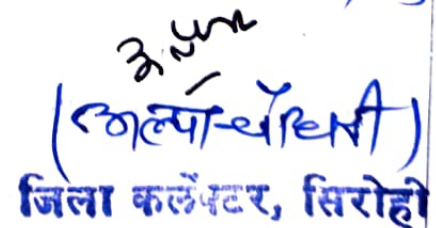 (अल्पा चौधरी)
जिला कलेक्टर, सिरोही